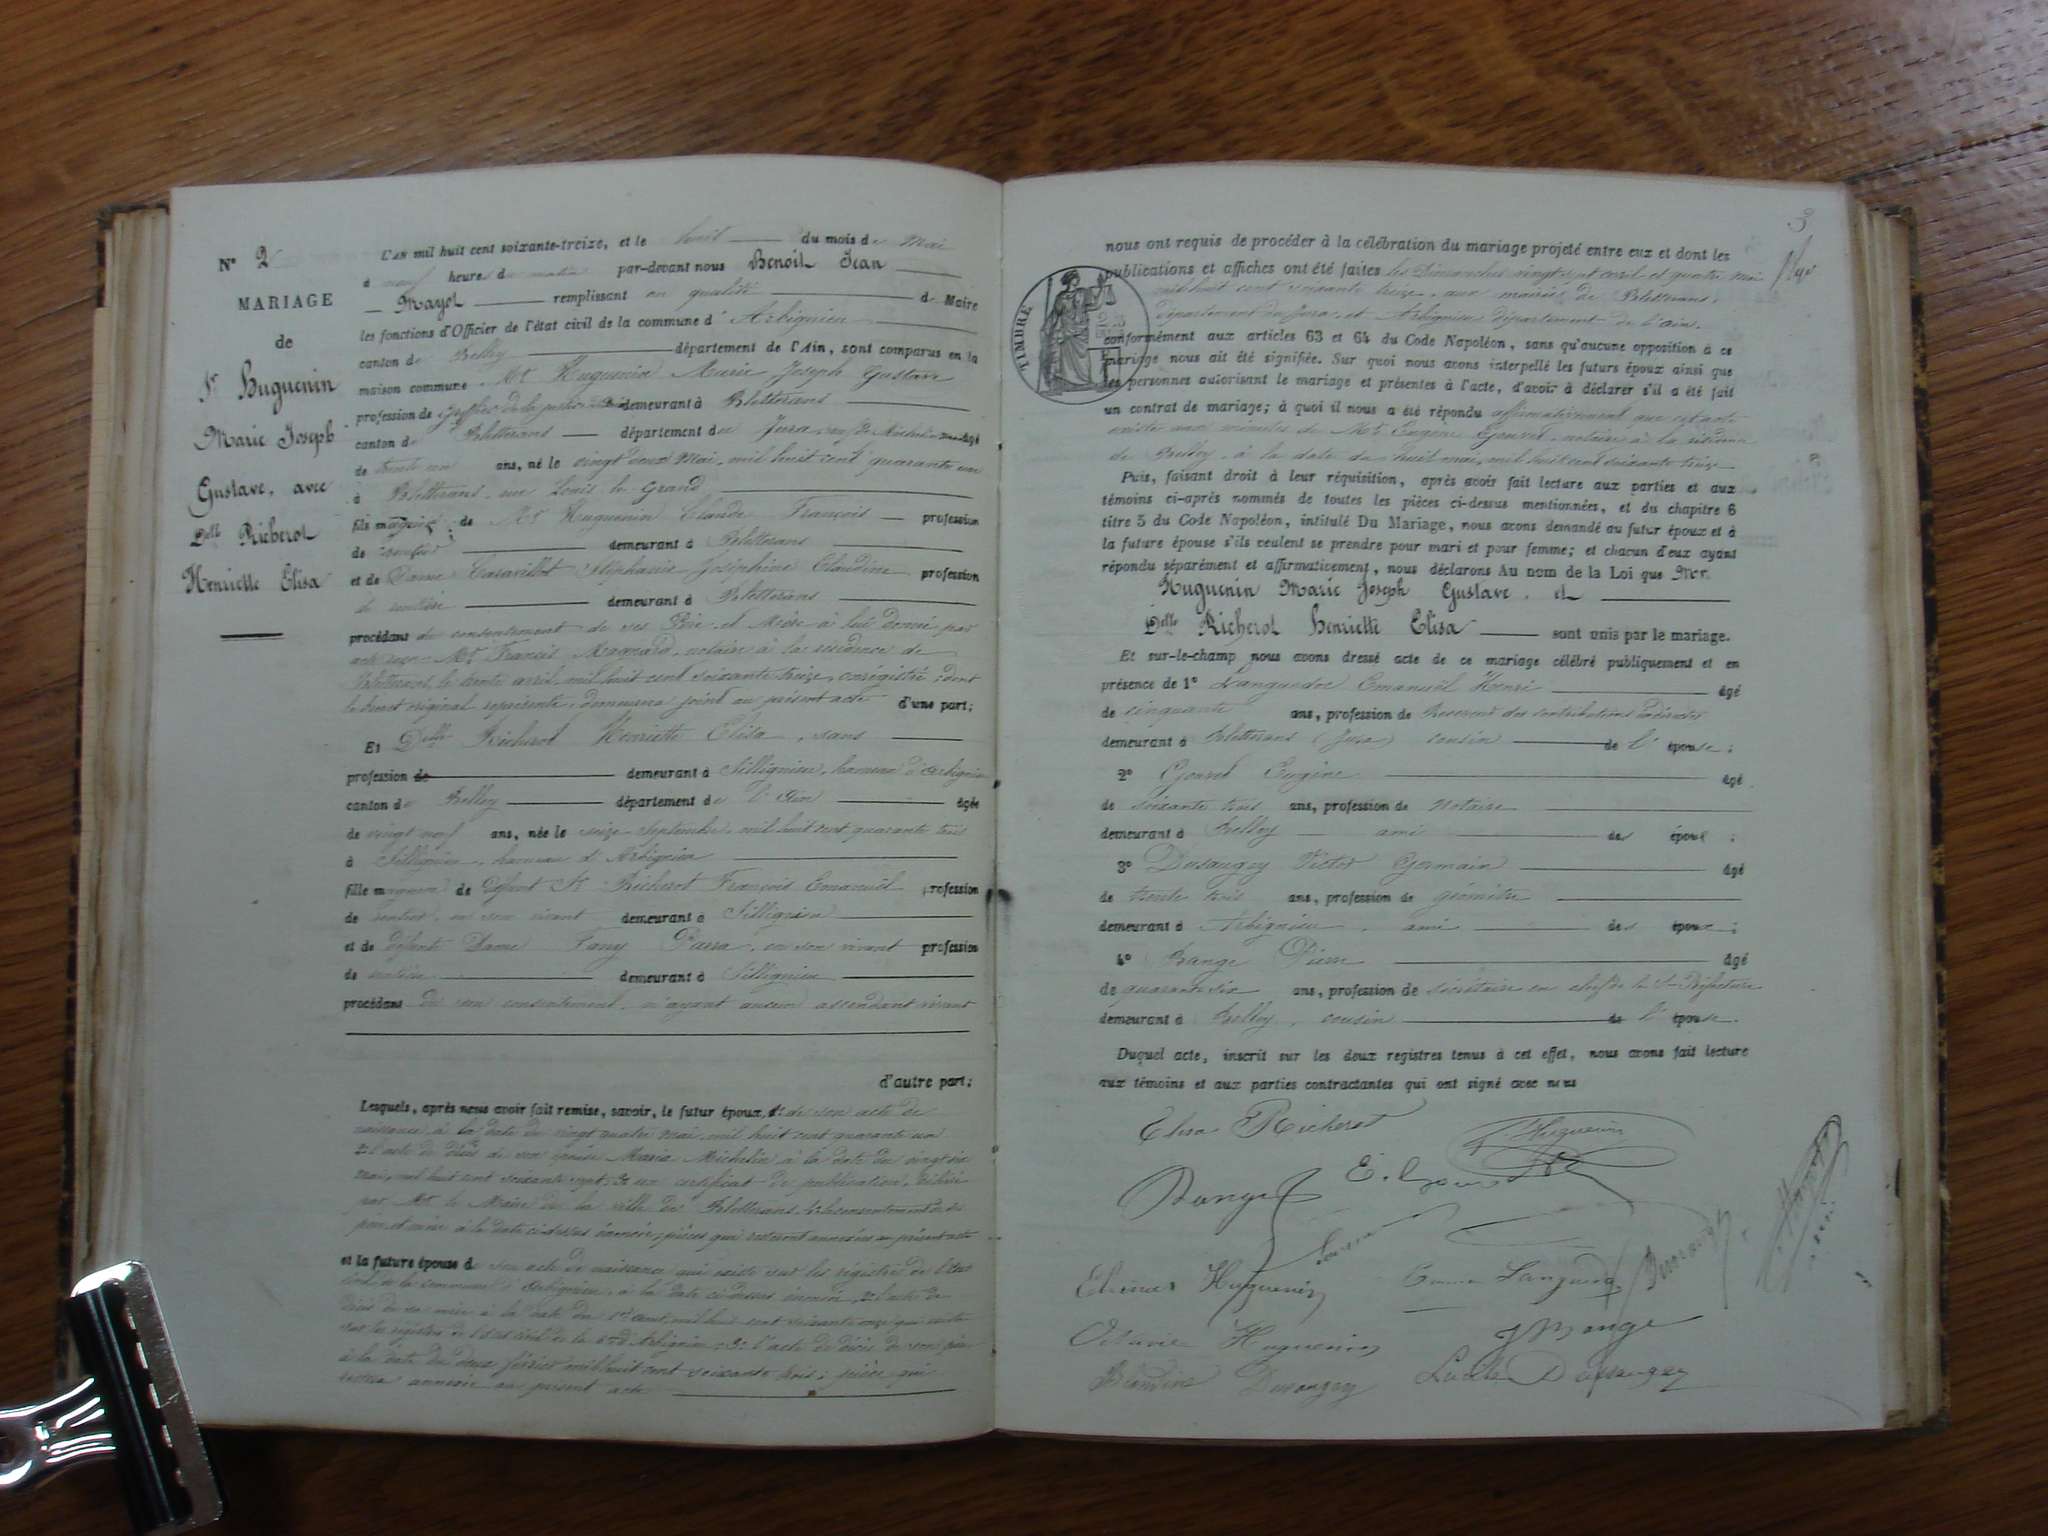 N° 2
MARIAGE
de
Sr Huguenin
Marie Joseph
Gustave, avec
Delle Richerot
Henriette Elisa
L'an mil huit cent soixante-treize, et le huit du mois de Mai
à neuf heure du matin par-devant nous Benoit Jean
Mayot remplissant en qualité de Maire
les fonctions d'Officier de l'état civil de la commune d'Arbignieu
canton de Belley département de l'Ain, sont comparus en la
maison commune Mr Huguenin Marie Joseph Gustave
profession de greffier de la justice de demeurant à Bletterans
canton de Bletterans département du Jura, veuf de Michelin âgé
de trente un ans, né le vingt deux Mai, mil huit cent quarante un
à Bletterans, rue Louis le Grand
fils majeur de Mr Huguenin Claude François profession
de rentier demeurant à Bletterans
et de Dame Stéphanie Joséphine Claudine profession
de rentière demeurant à Bletterans
procédant du consentement de ses Père et Mère à lui donné par
acte reçu Mr François notaire à la résidence de
Bletterans, le trente avril, mil huit cent soixante treize, enregistré, dont
le brevet original représenté, demeurera joint au présent acte d'une part;
Et Delle Richerot Henriette Elisa, sans
profession de demeurant à Sillignieu, hameau d'Arbignieu
canton de Belley département de l'Ain âgée
de vingt neuf ans, née le seize septembre, mil huit cent quarante trois
à Sillignieu, hameau d'Arbignieu
fille majeure de défunt Sr Richerot François Emanuël profession
de rentier, en son vivant demeurant à Sillignieu
et de défunte Dame Fany, en son vivant profession
de rentière demeurant à Sillignieu
procédant de son consentement, n'ayant aucun ascendant vivant
d'autre part;
Lesquels, après nous avoir fait remise, savoir, le futur époux, 1° de son acte de
naissance, à la date du vingt quatre mai, mil huit cent quarante un
2° l'acte de décès de son épouse Maria Michelin à la date du vingt six
mai, mil huit cent soixante sept, 3° un certificat de publication, délivré
par Mr le Maire de la ville de Bletterans, 4° le consentement de ses
père et mère à la date ci-dessus énoncée, pièces qui resteront annexées au présent acte
et la future épouse de son acte de naissance qui existe sur les registres de l'état
civil de la commune d'Arbignieu, à la date ci-dessus énoncée, 2° l'acte de
décès de sa mère à la date du mil huit cent soixante onze qui existe
sur les registres de l'état civil de la cne d'Arbignieu, 3° l'acte de décès de son père
à la date du deux février mil huit cent soixante trois; pièce qui
restera annexée au présent acte
3
nous ont requis de procéder à la célébration du mariage projeté entre eux et dont les
publications et affiches ont été faites les Dimanches vingt sept avril et quatre mai
mil huit cent soixante treize, aux mairies de Bletterans,
département du Jura, et Arbignieu département de l'Ain.
TIMBRE
conformément aux articles 63 et 64 du Code Napoléon, sans qu'aucune opposition à ce
mariage nous ait été signifiée. Sur quoi nous avons interpellé les futurs époux ainsi que
les personnes autorisant le mariage et présentes à l'acte, d'avoir à déclarer s'il a été fait
un contrat de mariage; à quoi il nous a été répondu affirmativement que cet acte
existe aux minutes de Mr Eugène Gouvet, notaire à la résidence
de Belley, à la date du huit mai, mil huit cent soixante treize
Puis, faisant droit à leur réquisition, après avoir fait lecture aux parties et aux
témoins ci-après nommés de toutes les pièces ci-dessus mentionnées, et du chapitre 6
titre 5 du Code Napoléon, intitulé Du Mariage, nous avons demandé au futur époux et à
la future épouse s'ils veulent se prendre pour mari et pour femme; et chacun d'eux ayant
répondu séparément et affirmativement, nous déclarons Au nom de la Loi que Mr
Huguenin Marie Joseph Gustave, et
Delle Richerot Henriette Elisa sont unis par le mariage.
Et sur-le-champ nous avons dressé acte de ce mariage célébré publiquement et en
présence de 1° Languedoc Emanuël Henri âgé
de cinquante ans, profession de Receveur des contributions indirectes
demeurant à Bletterans (Jura) cousin de l'épouse;
2° Gouvet Eugène âgé
de soixante trois ans, profession de notaire
demeurant à Belley ami des époux;
3° Dusaugey Victor Germain âgé
de trente trois ans, profession de géomètre
demeurant à Arbignieu, ami des époux;
4° Bange Pierre âgé
de quarante six ans, profession de secrétaire en chef de la Ss Préfecture
demeurant à Belley, cousin de l'épouse.
Duquel acte, inscrit sur les deux registres tenus à cet effet, nous avons fait lecture
aux témoins et aux parties contractantes qui ont signé avec nous
Elisa Richerot
G Huguenin
Bange
Huguenin
Octavie Huguenin
Bange
Blandine Dusaugey
Lucile Dusaugey